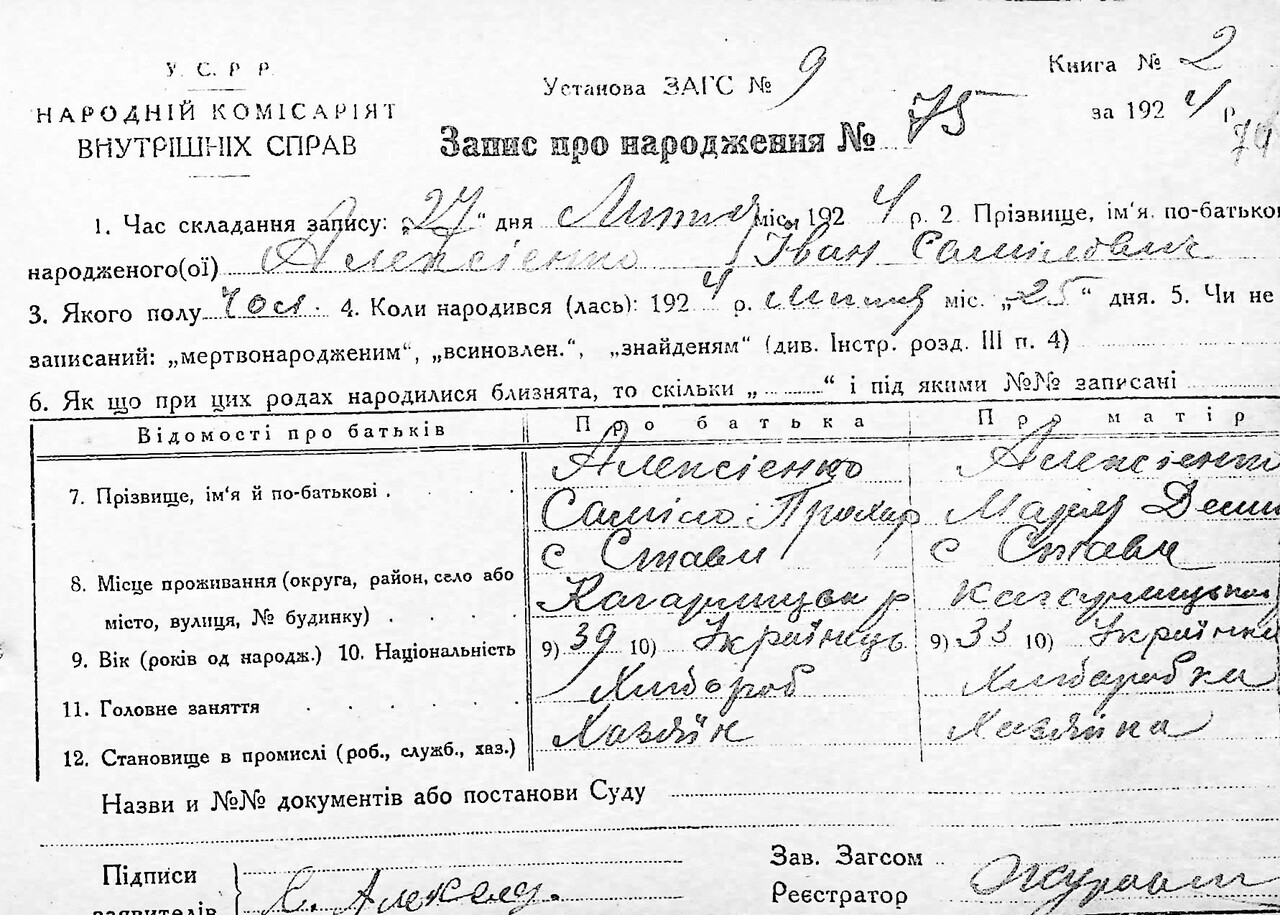 У. С. Р. Р.
НАРОДНІЙ КОМІСАРІЯТ
ВНУТРІШНІХ СПРАВ
Установа ЗАГС № 9
Книга № 2
за 1924 р.
Запис про народження № 75
74
1. Час складання запису: „27“ дня Липня міс. 1924 р. 2 Прізвище, ім'я. по-батькові
народженого(ої) Алексієнко Іван Самілович
3. Якого полу чол. 4. Коли народився (лась): 1924 р. Липня міс. „25“ дня. 5. Чи не
записаний: „мертвонародженим“, „всиновлен.“, „знайденям“ (див. Інстр. розд. III п. 4)
6. Як що при цих родах народилися близнята, то скільки „ “ і під якими №№ записані
Відомості про батьків Про батька Про матір
7. Прізвище, ім'я й по-батькові . Алексієнко Алексієнко
Саміло Прохор Марія Деми
с Стави с Стави
8. Місце проживання (округа, район, село або
місто, вулиця, № будинку) Кагарлицьк р Кагарлицького
9. Вік (років од народж.) 10. Національність 9) 39 10) Українець 9) 33 10) Українка
11. Головне заняття Хлібороб Хліборобка
12. Становище в промислі (роб., служб., хаз.) Хазяїн Хазяйка
Назви и №№ документів або постанови Суду
Підписи
заявителів С. Алексієн.
Зав. Загсом
Реєстратор